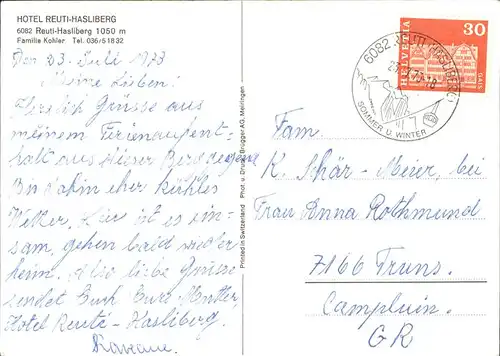 HOTEL REUTI-HASLIBERG
6082 Reuti-Hasliberg 1050 m
Familie Kohler Tel. 036/5 18 32
Den 23. Juli 1973
Meine Lieben!
Herzlich Grüsse aus
meinem Ferienaufent-
halt aus dieser Berggegend
Bis dahin eher kühles
Wetter, hier ist es ein-
sam, gehen bald wieder
heim. Also liebe Grüsse
sendet Euch Eure Mutter,
Hotel Reuti-
Hasliberg.
Printed in Switzerland Phot. u. Druck: Brügger AG, Meiringen
6082 REUTI (HASLIBERG)
SOMMER U. WINTER
HELVETIA
30
GAIS
Fam.
K. Schär-Meier, bei
Frau Anna Rothmund
7166 Truns.
Campliun.
GR